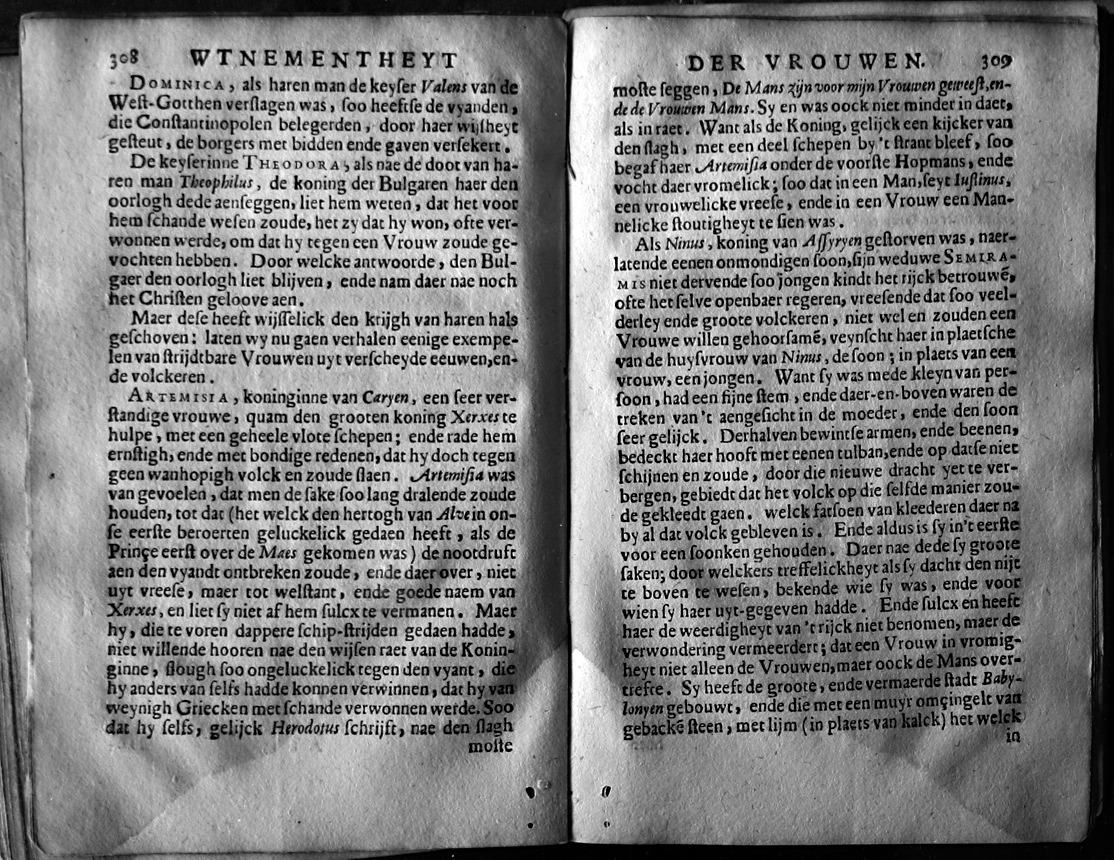 308 WTNEMENTHEYT
DOMINICA, als haren man de keyser Valens van de
West-Gotthen verslagen was, soo heeftse de vyanden,
die Constantinopolen belegerden, door haer wijsheyt
gesteut, de borgers met bidden ende gaven versekert.
De keyserinne THEODORA, als nae de doot van ha-
ren man Theophilus, de koning der Bulgaren haer den
oorlogh dede aenseggen, liet hem weten, dat het voor
hem schande wesen zoude, het zy dat hy won, ofte ver-
wonnen werde, om dat hy tegen een Vrouw zoude ge-
vochten hebben. Door welcke antwoorde, den Bul-
gaer den oorlogh liet blijven, ende nam daer nae noch
het Christen geloove aen.
Maer dese heeft wijsselick den krijgh van haren hals
geschoven: laten wy nu gaen verhalen eenige exempe-
len van strijdtbare Vrouwen uyt verscheyde eeuwen, en-
de volckeren.
ARTEMISIA, koninginne van Caryen, een seer ver-
standige vrouwe, quam den grooten koning Xerxes te
hulpe, met een geheele vlote schepen; ende rade hem
ernstigh, ende met bondige redenen, dat hy doch tegen
geen wanhopigh volck en zoude slaen. Artemisia was
van gevoelen, dat men de sake soo lang dralende zoude
houden, tot dat (het welck den hertogh van Alve in on-
se eerste beroerten geluckelick gedaen heeft, als de
Prinçe eerst over de Maes gekomen was) de nootdruft
aen den vyandt ontbreken zoude, ende daer over, niet
uyt vreese, maer tot welstant, ende goede naem van
Xerxes, en liet sy niet af hem sulcx te vermanen. Maer
hy, die te voren dappere schip-strijden gedaen hadde,
niet willende hooren nae den wijsen raet van de Konin-
ginne, slough soo ongeluckelick tegen den vyant, die
hy anders van selfs hadde konnen verwinnen, dat hy van
weynigh Griecken met schande verwonnen werde. Soo
dat hy selfs, gelijck Herodotus schrijft, nae den slagh
moste
DER VROUWEN. 309
moste seggen, De Mans zijn voor mijn Vrouwen geweest, en-
de de Vrouwen Mans. Sy en was oock niet minder in daet,
als in raet. Want als de Koning, gelijck een kijcker van
den slagh, met een deel schepen by 't strant bleef, soo
begaf haer Artemisia onder de voorste Hopmans, ende
vocht daer vromelick; soo dat in een Man, seyt Iustinus,
een vrouwelicke vreese, ende in een Vrouw een Man-
nelicke stoutigheyt te sien was.
Als Ninus, koning van Assyryen gestorven was, naer-
latende eenen onmondigen soon, sijn weduwe SEMIRA-
MIS niet dervende soo jongen kindt het rijck betrouwē,
ofte het selve openbaer regeren, vreesende dat soo veel-
derley ende groote volckeren, niet wel en zouden een
Vrouwe willen gehoorsamē, veynscht haer in plaetsche
van de huysvrouw van Ninus, de soon; in plaets van een
vrouw, een jongen. Want sy was mede kleyn van per-
soon, had een fijne stem, ende daer-en-boven waren de
treken van 't aengesicht in de moeder, ende den soon
seer gelijck. Derhalven bewintse armen, ende beenen,
bedeckt haer hooft met eenen tulban, ende op datse niet
schijnen en zoude, door die nieuwe dracht yet te ver-
bergen, gebiedt dat het volck op die selfde manier zou-
de gekleedt gaen. welck fatsoen van kleederen daer na
by al dat volck gebleven is. Ende aldus is sy in't eerste
voor een soonken gehouden. Daer nae dede sy groote
saken; door welckers treffelickheyt als sy dacht den nijt
te boven te wesen, bekende wie sy was, ende voor
wien sy haer uyt-gegeven hadde. Ende sulcx en heeft
haer de weerdigheyt van 't rijck niet benomen, maer de
verwondering vermeerdert; dat een Vrouw in vromig-
heyt niet alleen de Vrouwen, maer oock de Mans over-
trefte. Sy heeft de groote, ende vermaerde stadt Baby-
lonyen gebouwt, ende die met een muyr omçingelt van
gebackē steen, met lijm (in plaets van kalck) het welck
in